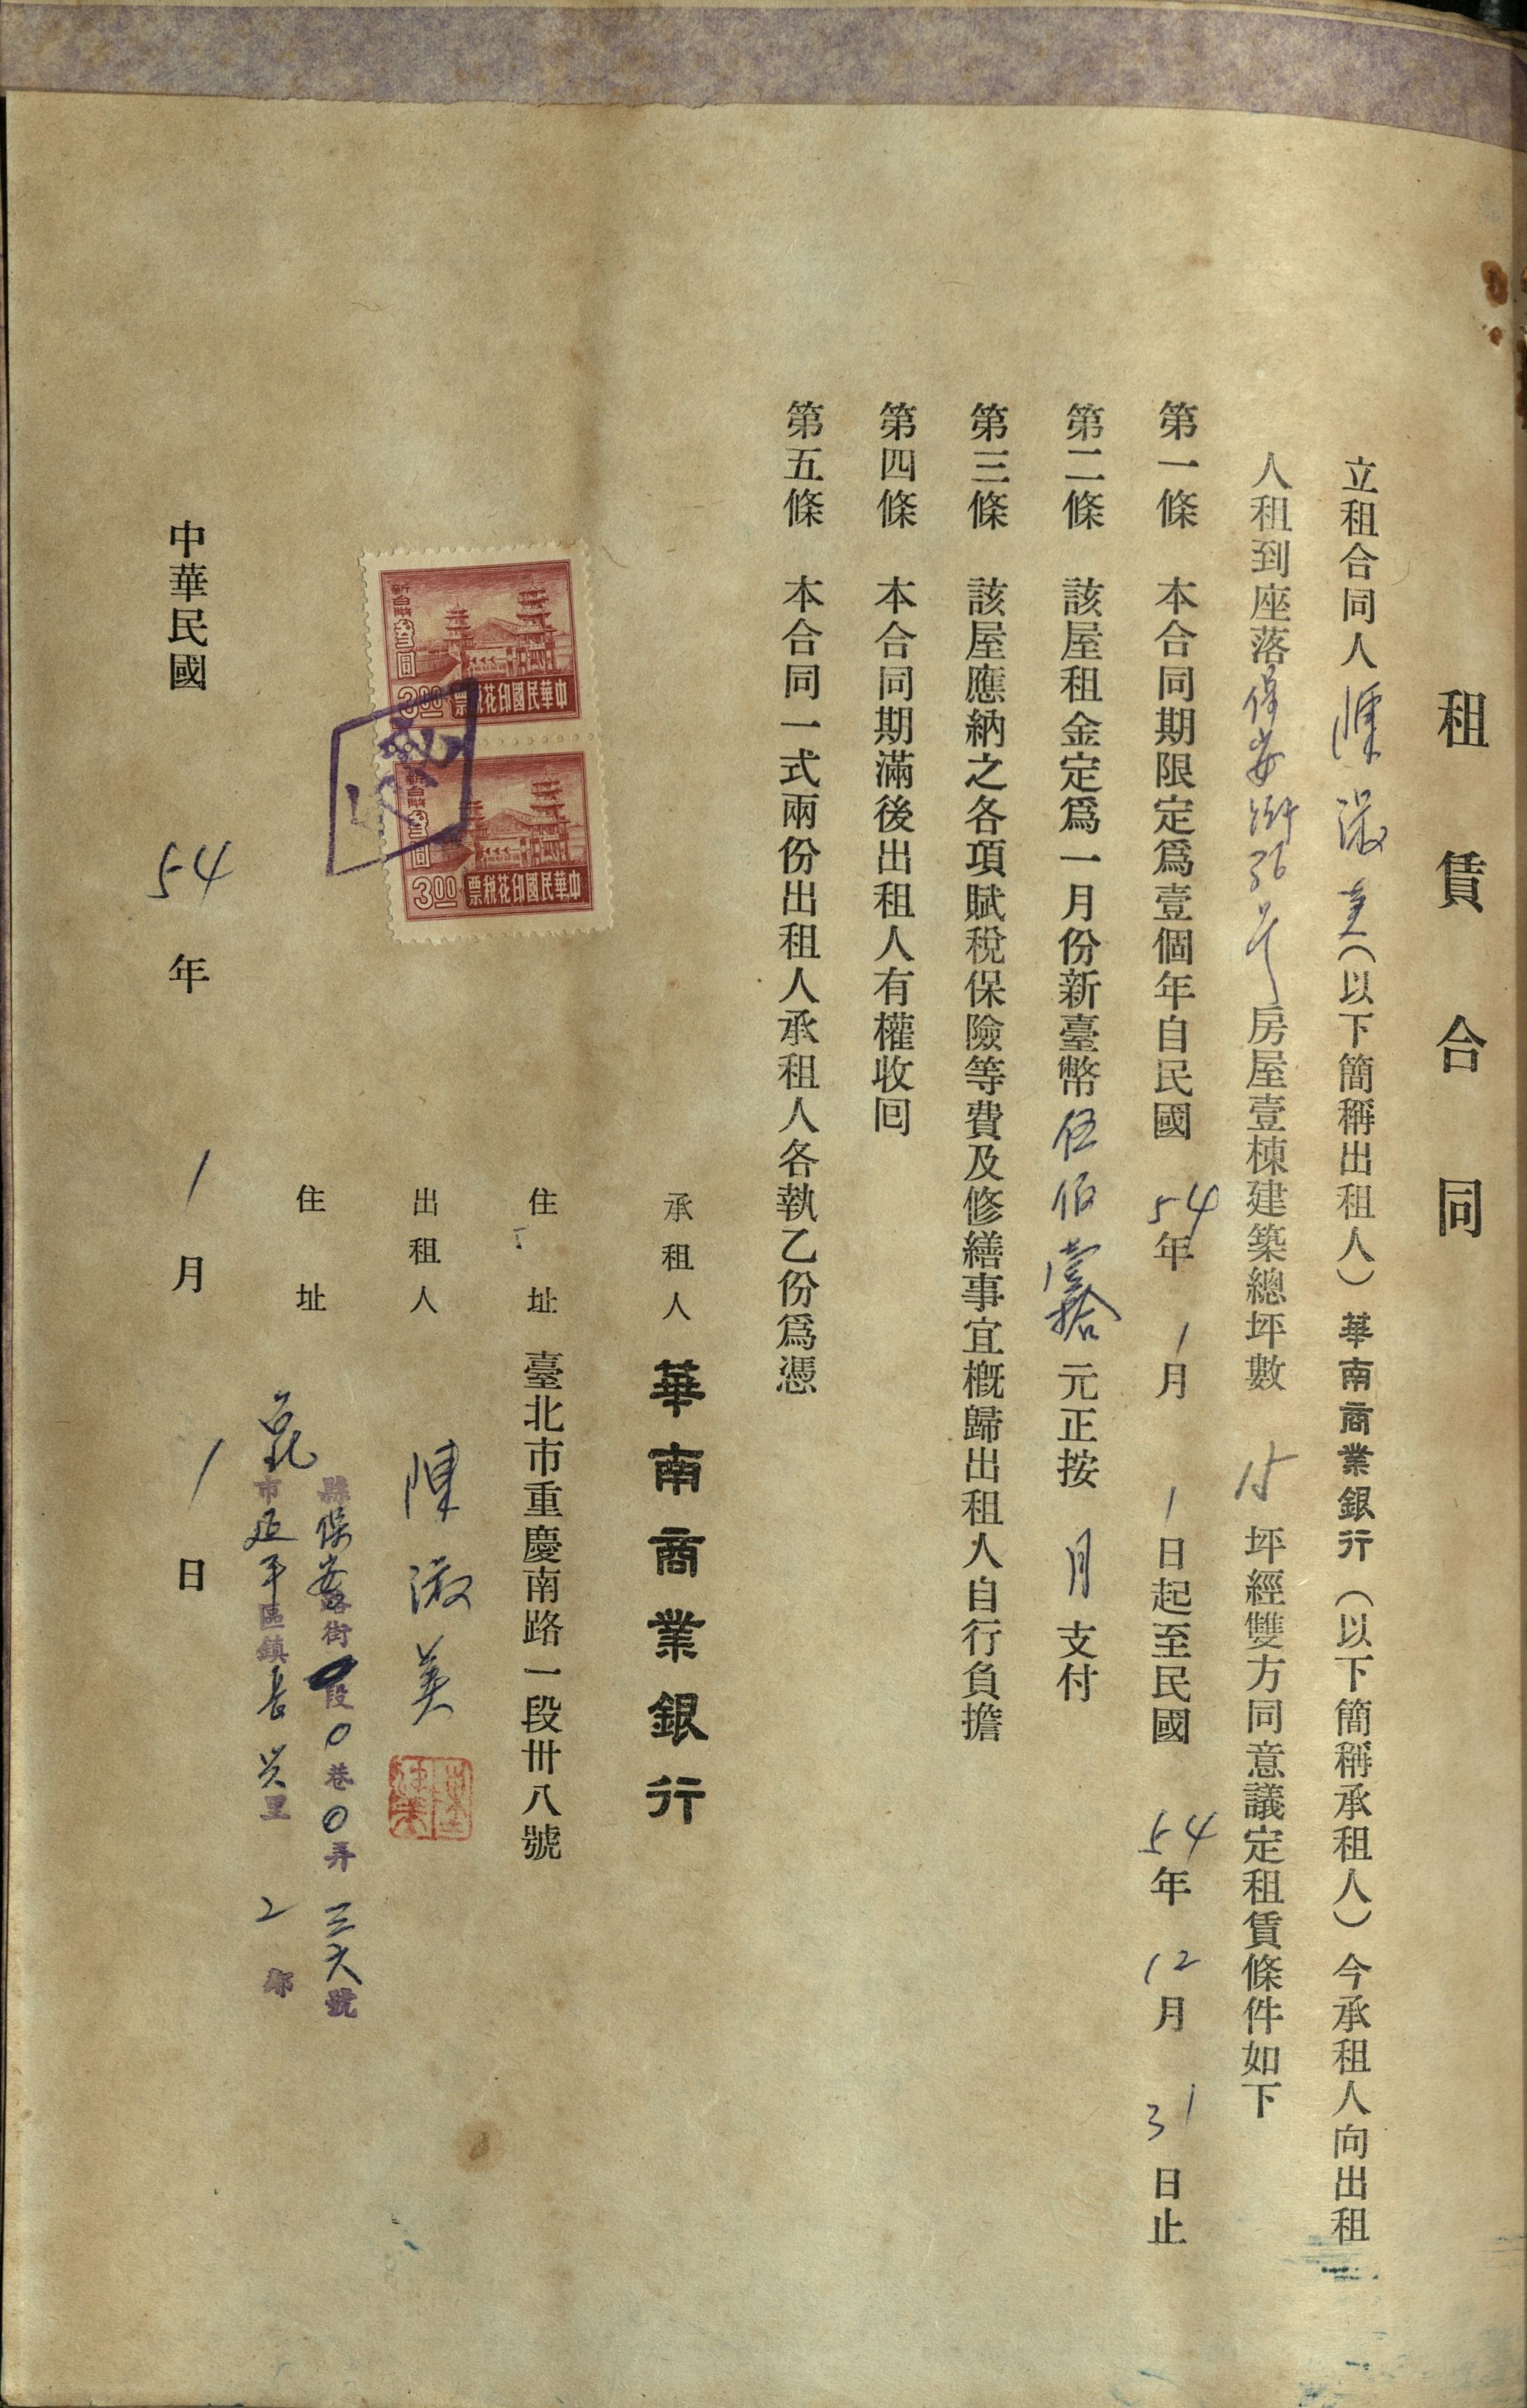 租賃合同
立租合同人陳淑美(以下簡稱出租人)華南商業銀行(以下簡稱承租人)今承租人向出租
人租到座落保安街36号房屋壹棟建築總坪數15坪經雙方同意議定租賃條件如下
第一條 本合同期限定爲壹個年自民國54年1月1日起至民國54年12月31日止
第二條 該屋租金定爲一月份新臺幣伍佰壹拾元正按月支付
第三條 該屋應納之各項賦稅保險等費及修繕事宜概歸出租人自行負擔
第四條 本合同期滿後出租人有權收回
第五條 本合同一式兩份出租人承租人各執乙份爲憑
承租人 華南商業銀行
住址 臺北市重慶南路一段卅八號
出租人 陳淑美
住址
縣保安路街段0巷0弄三六號
市延平區鎮長里2鄰
新台幣叁圓
3.00
中華民國印花稅票
新台幣叁圓
3.00
中華民國印花稅票
中華民國54年1月1日